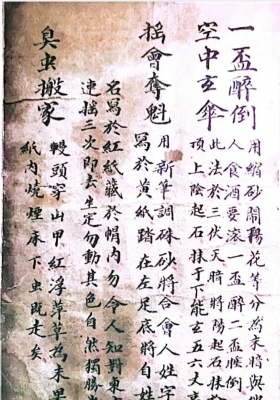 一盃醉倒
用縮砂鬧楊花等分為末暗與
人食酒要滾一盃醉二盃睡倒
空中玄傘
此法於三伏天時將陽起石抹於
項上陰起石抹于下能玄五六丈
搖會奪魁
用新筆調硃砂將合會人姓字
寫於黃紙踏在左足底將自姓
名寫於紅紙藏於帽內勿令人知對東
連搖三次即去坐定勿動其色自然獨勝
臭虫搬家
鰻頭穿山甲紅浮萍草為末里
紙內燒煙床下虫既走矣